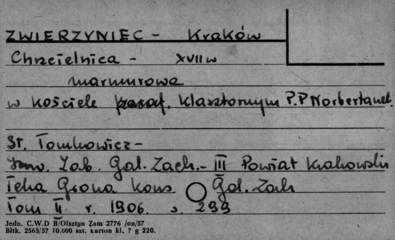 ZWIERZYNIEC - Kraków
Chrzcielnica - XVII w
marmurowa
w kościele paraf. klasztornym P.P Norbertanek.
St. Tomkowicz -
Inw. Zab. Gal. Zach. - III Powiat Krakowski
Teka Grona Kons Gal. Zach
Tom II. r. 1906. s. 299
Jedn. C.W.D B/Olsztyn Zam 2776 /on/57
Bltk. 2563/57 10.000 szt. karton kl. 7 g 220.